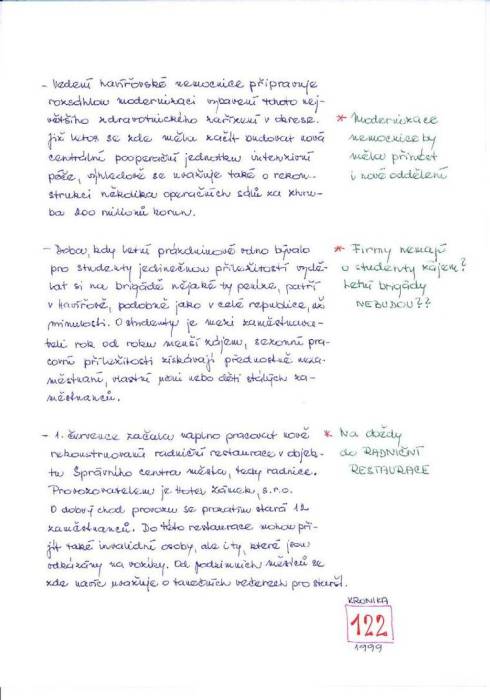 - Vedení havířovské nemocnice připravuje
rozsáhlou modernizaci vybavení tohoto nej-
většího zdravotnického zařízení v okrese.
Již letos se zde měla začít budovat nová
centrální pooperační jednotka intenzivní
péče, výhledově se uvažuje také o rekon-
strukci několika operačních sálů za zhru-
ba 200 milionů korun.
* Modernizace
nemocnice by
měla přinést
i nové oddělení
- Doba, kdy letní prázdninové volno bývalo
pro studenty jedinečnou příležitostí vydě-
lat si na brigádě nějaké ty peníze, patří
v Havířově, podobně jako v celé republice, už
minulosti. O studenty je mezi zaměstnava-
teli rok od roku menší zájem, sezonní pra-
covní příležitosti získávají přednostně neza-
městnaní, vlastní nebo děti stálých za-
městnanců.
* Firmy nemají
o studenty zájem?
Letní brigády
NEBUDOU??
- 1. července začala naplno pracovat nově
rekonstruovaná radniční restaurace v objek-
tu Správního centra města, tedy radnice.
Provozovatelem je Hotel Zámek, s.r.o.
O dobrý chod provozu se prozatím stará 12
zaměstnanců. Do této restaurace mohou při-
jít také invalidní osoby, ale i ty, které jsou
odkázány na vozíky. Od podzimních měsíců se
zde navíc uvažuje o tanečních večerech pro starší.
* Na dožky
do RADNIČNÍ
RESTAURACE
KRONIKA
122
1999